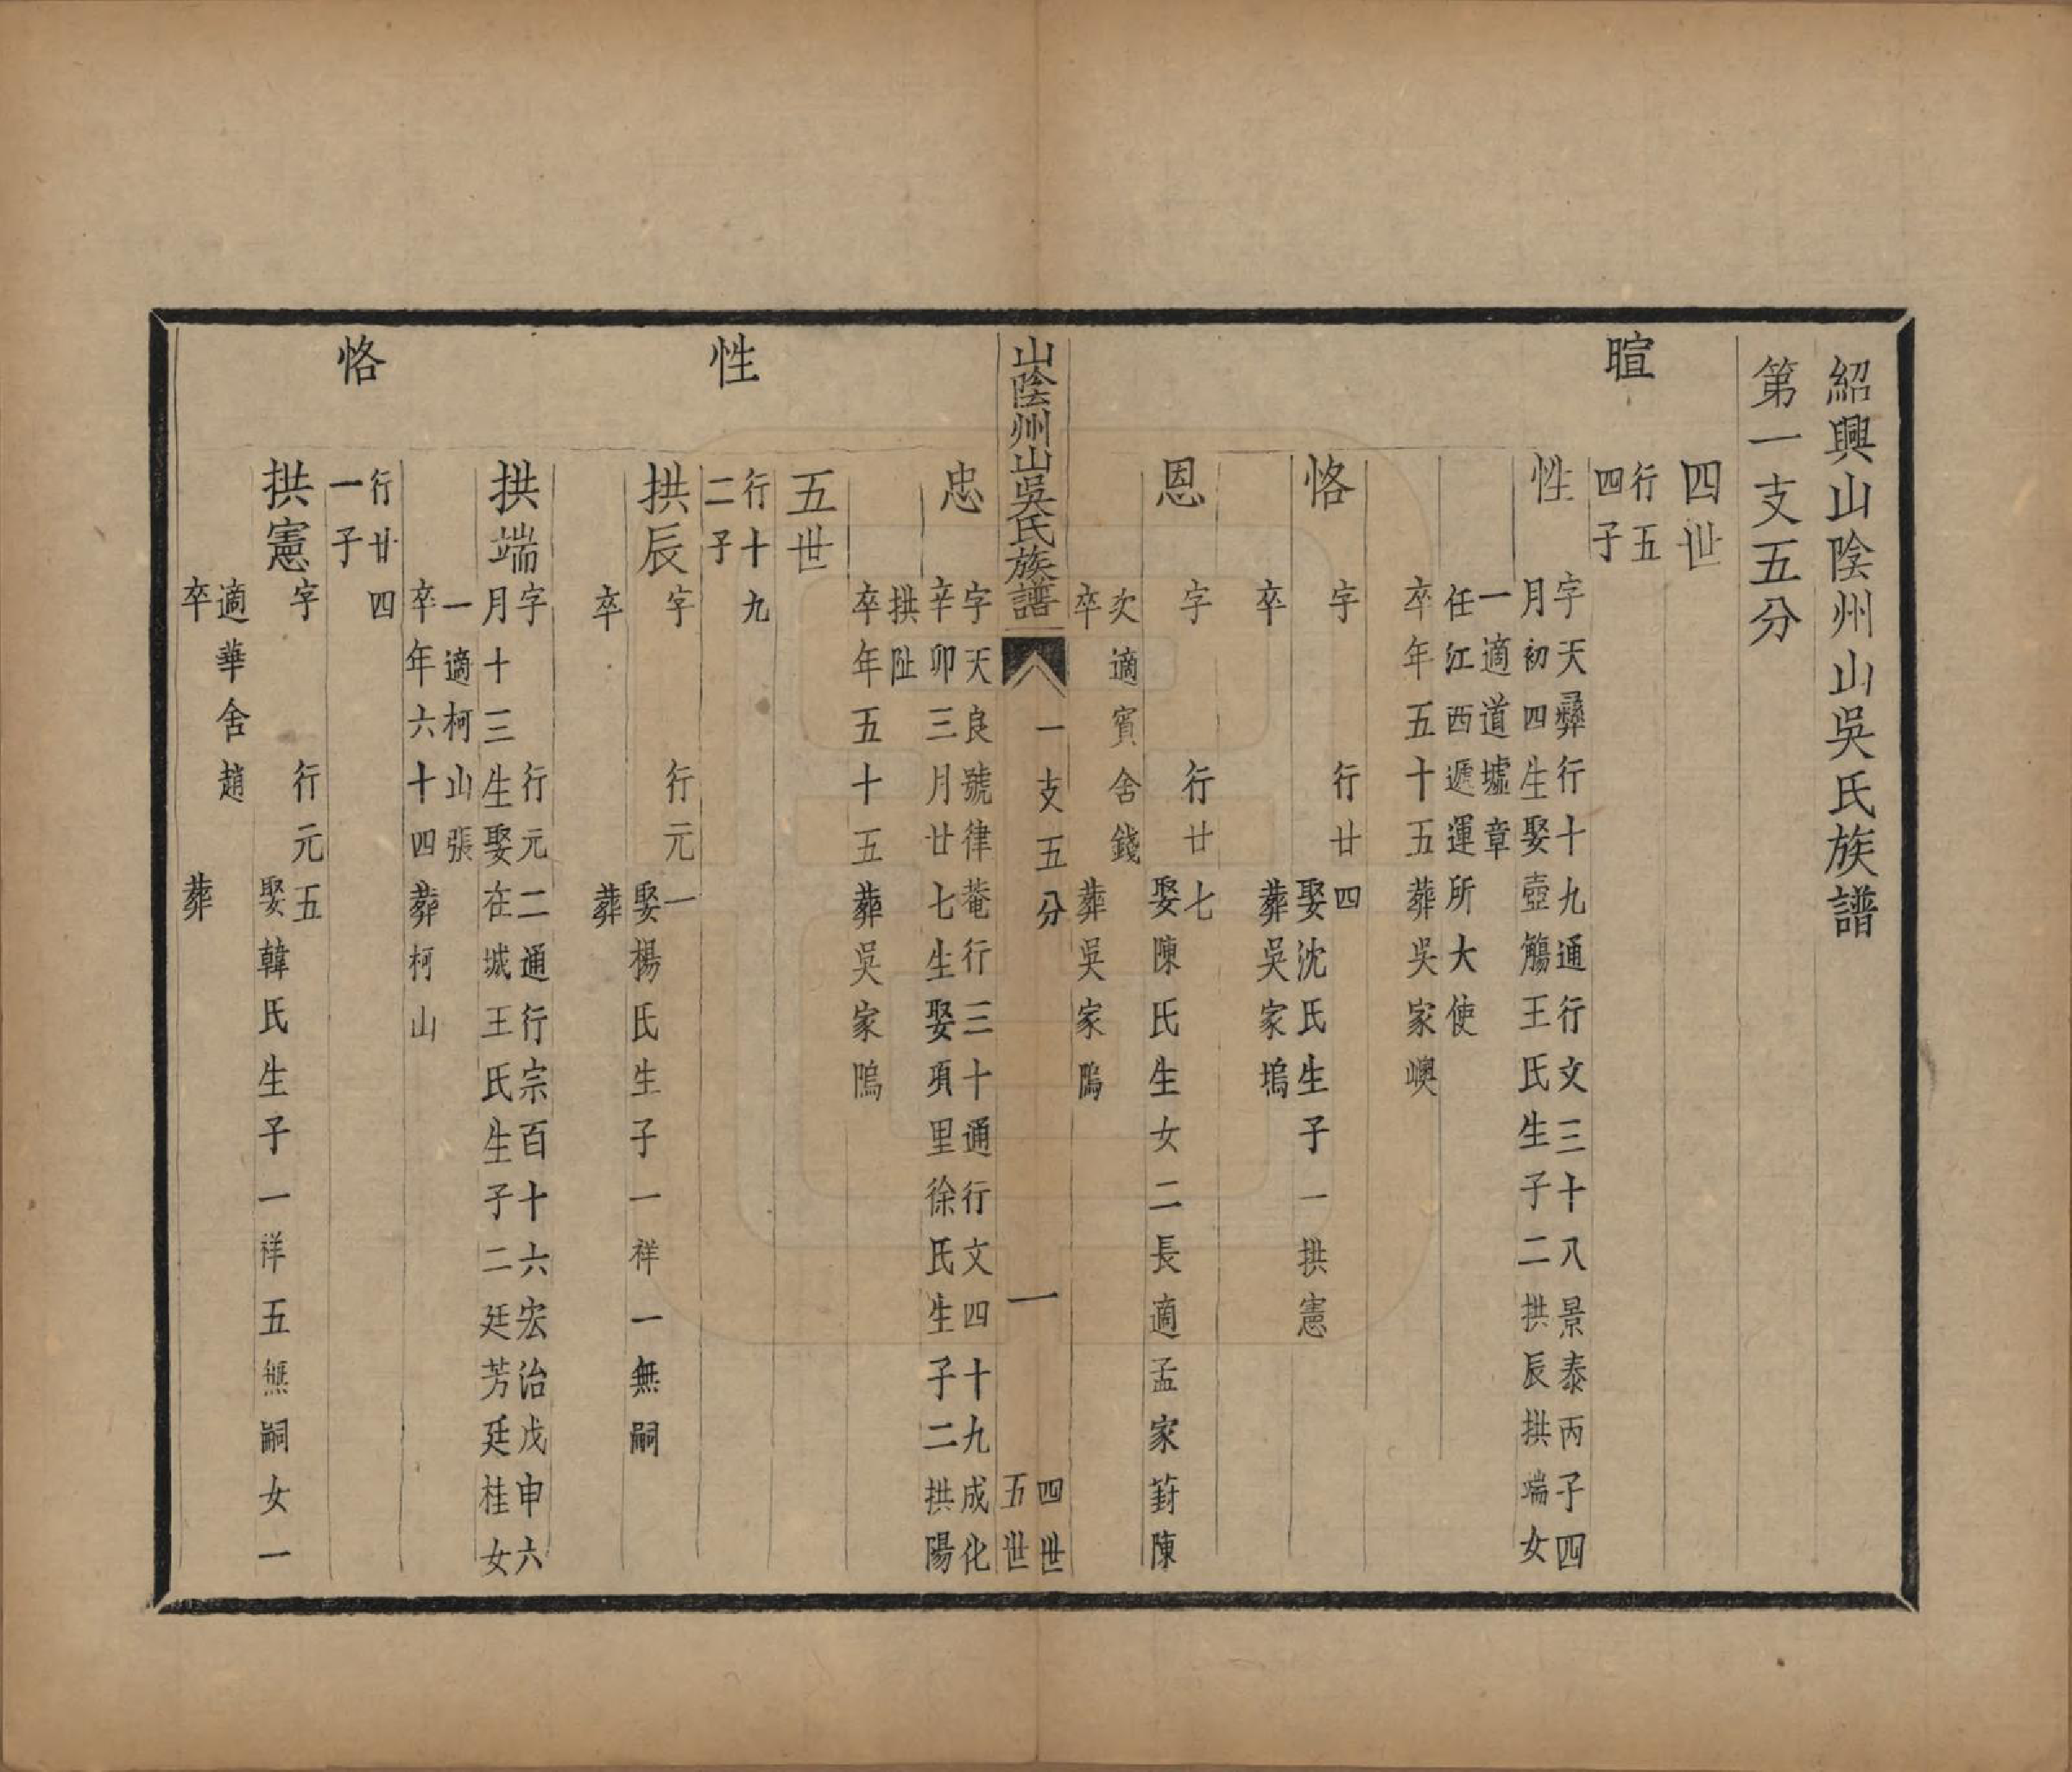 紹興山陰州山吳氏族譜
第一支五分
四世
暄
行五
四子
性
字天彝行十九通行文三十八景泰丙子四
月初四生娶壺觴王氏生子二拱辰拱端女
一適道墟章
任江西遞運所大使
卒年五十五葬吳家嶴
恪
字　行廿四
娶沈氏生子一拱憲
卒　葬吳家塢
恩
字　行廿七
娶陳氏生女二長適孟家葑陳
次適賓舍錢
卒　葬吳家隖
山陰州山吳氏族譜
一支五分
一
四世
五世
忠
字天良號律菴行三十通行文四十九成化
辛卯三月廿七生娶項里徐氏生子二拱陽
拱阯
卒年五十五葬吳家隖
五世
性
行十九
二子
拱辰
字　行元一
娶楊氏生子一祥一無嗣
卒　葬
拱端
字　行元二通行宗百十六宏治戊申六
月十三生娶在城王氏生子二廷芳廷桂女
一適柯山張
卒年六十四葬柯山
恪
行廿四
一子
拱憲
字　行元五
娶韓氏生子一祥五無嗣女一
適華舍趙
卒　葬